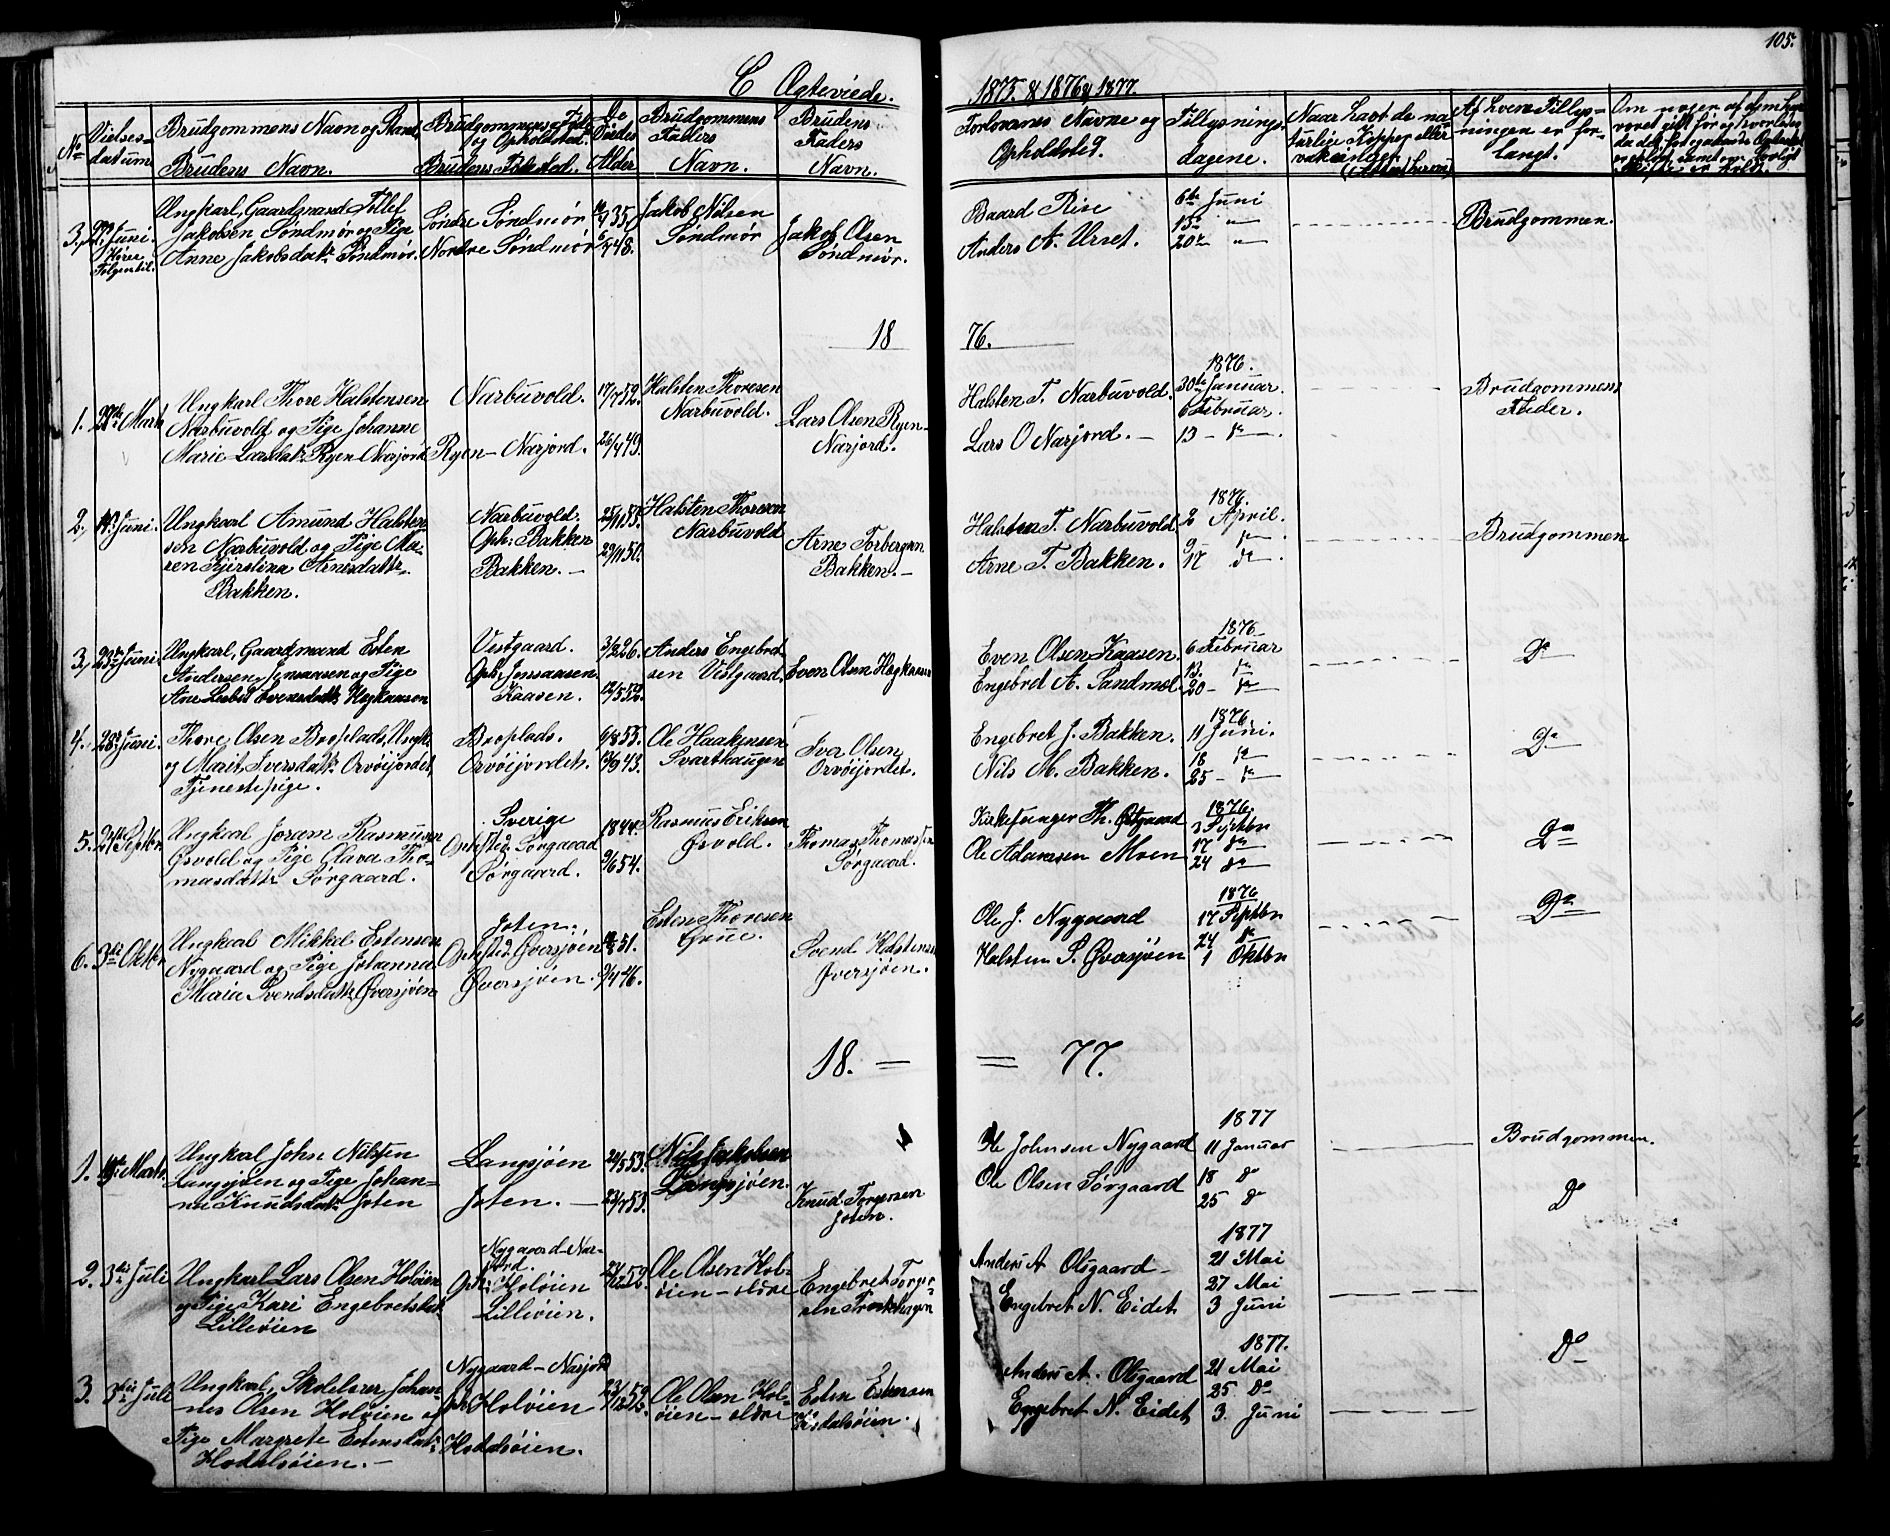 105.
C Ægteviede.
1875. & 1876 & 1877.
No
Vielses-
datum
Brudgommens Navn og Stand.
Brudens Navn.
Brudgommens Føde
og Opholdsted.
Brudens Fødested.
De
Viedes
Alder
Brudgommens
Faders
Navn.
Brudens
Faders
Navn.
Forlovernes Navne og
Opholdsted.
Tillysnings-
dagene.
Naar havt de na-
turlige Kopper eller
vakcineret
Af hvem Tillys-
ningen er for-
langt.
3,
Juni.
Ungkarl, Gaardmand Tillef
Jakobsen Søndmør og Pige
Anne Jakobsdatr Søndmør.
Søndre Søndmør
Nordre Søndmør
35
48.
Jakob Nilsen
Søndmør
Jakob Olsen
Søndmør.
Baard Rise
Anders A. Urset.
6te Juni
13de "
20de "
Brudgommen.
18 76.
1.
Marts
Ungkarl Thore Halstensen
Narbuvold og Pige Johanne
Marie Larsdatr Ryen Narjord
Narbuvold.
Ryen - Narjord.
17/7 52.
26/4 49.
Halsten Thoresen
Narbuvold.
Lars Olsen Ryen-
Narjord.
Halsten T. Narbuvold.
Lars O Narjord. -
1876.
30te Januar.
6 Februar.
13 - do
Brudgommens
Fader.
2,
Juni.
Ungkarl Amund Halsten
sen Narbuvold og Pige Ma-
ren Kjerstina Arnesdatr
Bakken.
Narbuvold.
Oph: Bakken
Bakken. -
29/11 50.
Halsten Thoresen
Narbuvold
Arne Torbergsen
Bakken. -
Halsten T. Narbuvold
Arne T. Bakken.
1876.
2 April.
9 do
17 do
Brudgommen
3,
Juni.
Ungkarl, Gaardmand Esten
Andersen Jensaasen og Pige
Ane Lisbet Evensdatr Høgkaasen
Vestgaard.
Oph: Jensaasen
Kaasen.
3/2 26.
12/5 52.
Anders Engebret
sen Vestgaard.
Even Olsen Høgkaasen
Even Olsen Kaasen.
Engebret A. Sandmæl.
1876
6 Februar
13. do
20 - do
Do
4.
28de Juni.
Thore Olsen Broplads, Ungk.
og Marit Iversdatr Orvöijordet,
Tjenestepige.
Broplads.
Orvöijordet.
6/8 55.
43.
Ole Haakensen
Svarthaugen
Iver Olsen
Orvöijordet.
Engebret J. Bakken.
Nils M. Bakken.
1876
11 Juni.
18 do
25 - do
Do
5.
Septbr
Ungkarl Joram Rasmusen
Øsvold og Pige Olava Tho-
masdatr Sørgaard.
Sverige
Ophsted Sørgaard
Sørgaard.
1844.
9/6 54.
Rasmus Eriksen
Øsvold.
Thomas Thomassen
Sørgaard.
Kirkesanger Th. Østgaard
Ole Adamsen Moen
1876.
3 Septbr
17 do
24 do
Do
6.
3de Oktbr
Ungkarl Mikkel Estensen
Nygaard og Pige Johanna
Maria Svendsdatr Øversjøen
Joten.
Ophsted Øversjøen
Øversjøen.
51.
9/4 46.
Esten Thoresen
Grue.
Svend Halstensen
Øversjøen.
Ole J. Nygaard
Halsten S. Øversjøen
1876
17 Septbr
24 do
1 Oktbr
Do
18. = = 77.
1.
Marts
Ungkarl John Nilsen
Langsjøen og Pige Johan-
ne Knudsdatr Joten
Langsjøen
Joten. -
24/5 53.
23/7 53.
Nils Jakobsen
Langsjøen.
Knud Torgersen
Joten.
Ole Johnsen Nygaard
Ole Olsen Sørgaard
1877
11 Januar
18 do
25 do
Brudgommen.
Do
2.
3die Juli
Ungkarl Lars Olsen Holøien
og Pige Kari Engebretsdatr
Lilleøien
Nygaard-Nar-
jord.
Oph: Holøien
Lilleøien.
52.
Ole Olsen Hol-
øien - eldre
Engebret Torger-
sen
Anders A Olsgaard -
Engebret N. Eidet
1877
21 Mai
27 Mai
3 Juni
3.
3die Juli
Ungkarl, Skolelærer Johan-
nes Olsen Holøien og
Pige Margrete Estensdatr
Hodalsøien. -
Nygaard - Narjord
Oph: Holøien
Hodalsøien.
23/12 52.
Ole Olsen Hol-
øien - eldre
Esten Estensen
Hodalsøien.
Anders A. Olsgaard
Engebret N. Eidet
1877.
21 Mai
25 Do
3. Juni
Do